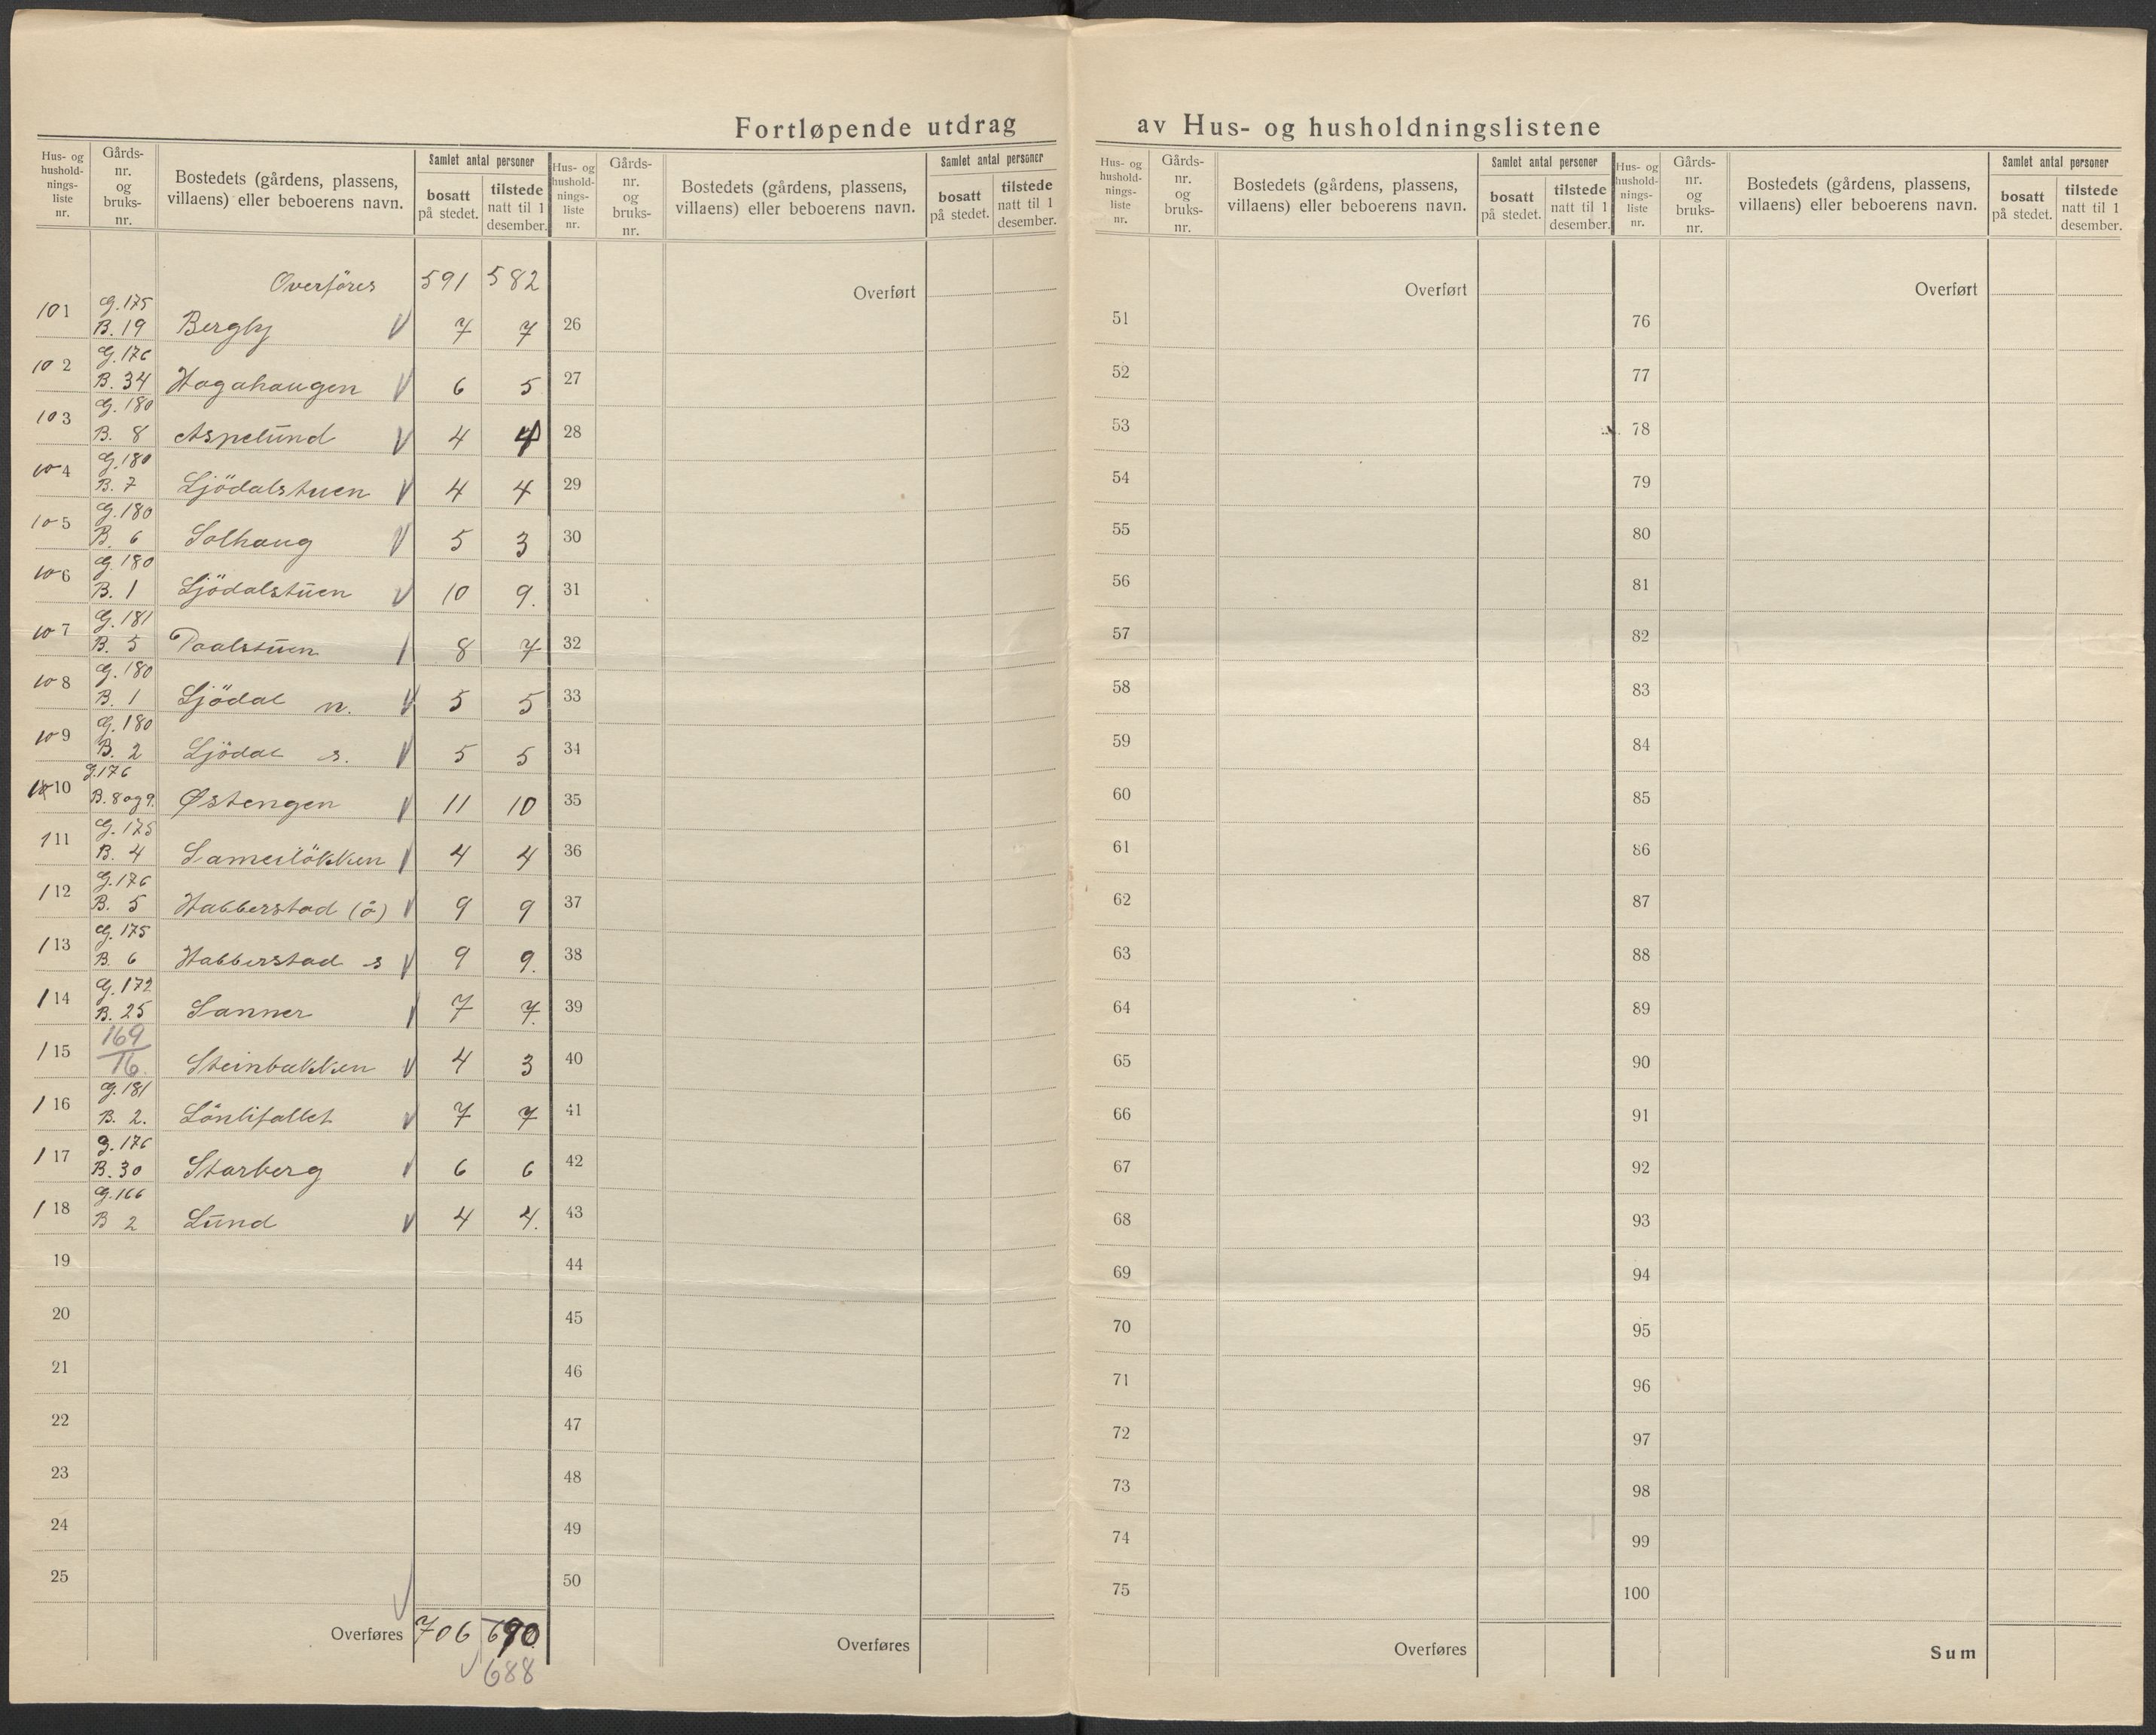 Fortløpende utdrag av Hus- og husholdningslistene
Hus- og hushold- nings- liste nr.
Gårds- nr. og bruks- nr.
Bostedets (gårdens, plassens, villaens) eller beboerens navn.
Samlet antal personer
bosatt på stedet.
tilstede natt til 1 desember.
Overföres 591 582
101 G. 175 B. 19 Bergby V 7 7
102 G. 176 B. 34 Hagahaugen V 6 5
103 G. 180 B. 8 Aspelund V 4 4
104 G. 180 B. 7 Ljödalstuen V 4 4
105 G. 180 B. 6 Solhaug V 5 3
106 G. 180 B. 1 Ljödalstuen V 10 9.
107 G. 181 B. 5 Paalstuen 8 7
108 G. 180 B. 1 Ljödal n. V 5 5
109 G. 180 B. 2 Ljödal s. V 5 5
110 G. 176 B. 8 og 9. Østengen V 11 10
111 G. 175 B. 4 4 4
112 G. 176 B. 5 Habberstad (ö) V 9 9
113 G. 175 B. 6 Habberstad s V 9 9.
114 G. 172 B. 25 Sanner 7 7.
115 169/16. Steinbakken V 4 3
116 G. 181 B. 2. Lönlifallet V 7 7
117 G. 176 B. 30 Starberg V 6 6
118 G. 166 B 2 Lund V 4 4.
19
20
21
22
23
24
25
Overføres 706 690
688
Hus- og hushold- nings- liste nr.
Gårds- nr. og bruks- nr.
Bostedets (gårdens, plassens, villaens) eller beboerens navn.
Samlet antal personer
bosatt på stedet.
tilstede natt til 1 desember.
Overført
26
27
28
29
30
31
32
33
34
35
36
37
38
39
40
41
42
43
44
45
46
47
48
49
50
Overføres
Hus- og hushold- nings- liste nr.
Gårds- nr. og bruks- nr.
Bostedets (gårdens, plassens, villaens) eller beboerens navn.
Samlet antal personer
bosatt på stedet.
tilstede natt til 1 desember.
Overført
51
52
53
54
55
56
57
58
59
60
61
62
63
64
65
66
67
68
69
70
71
72
73
74
75
Overføres
Hus- og hushold- nings- liste nr.
Gårds- nr. og bruks- nr.
Bostedets (gårdens, plassens, villaens) eller beboerens navn.
Samlet antal personer
bosatt på stedet.
tilstede natt til 1 desember.
Overført
76
77
78
79
80
81
82
83
84
85
86
87
88
89
90
91
92
93
94
95
96
97
98
99
100
Sum